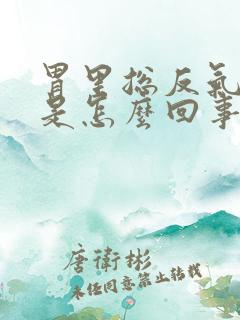 胃里总反气
是怎麽回事
唐衛彬
未经同意禁止转载